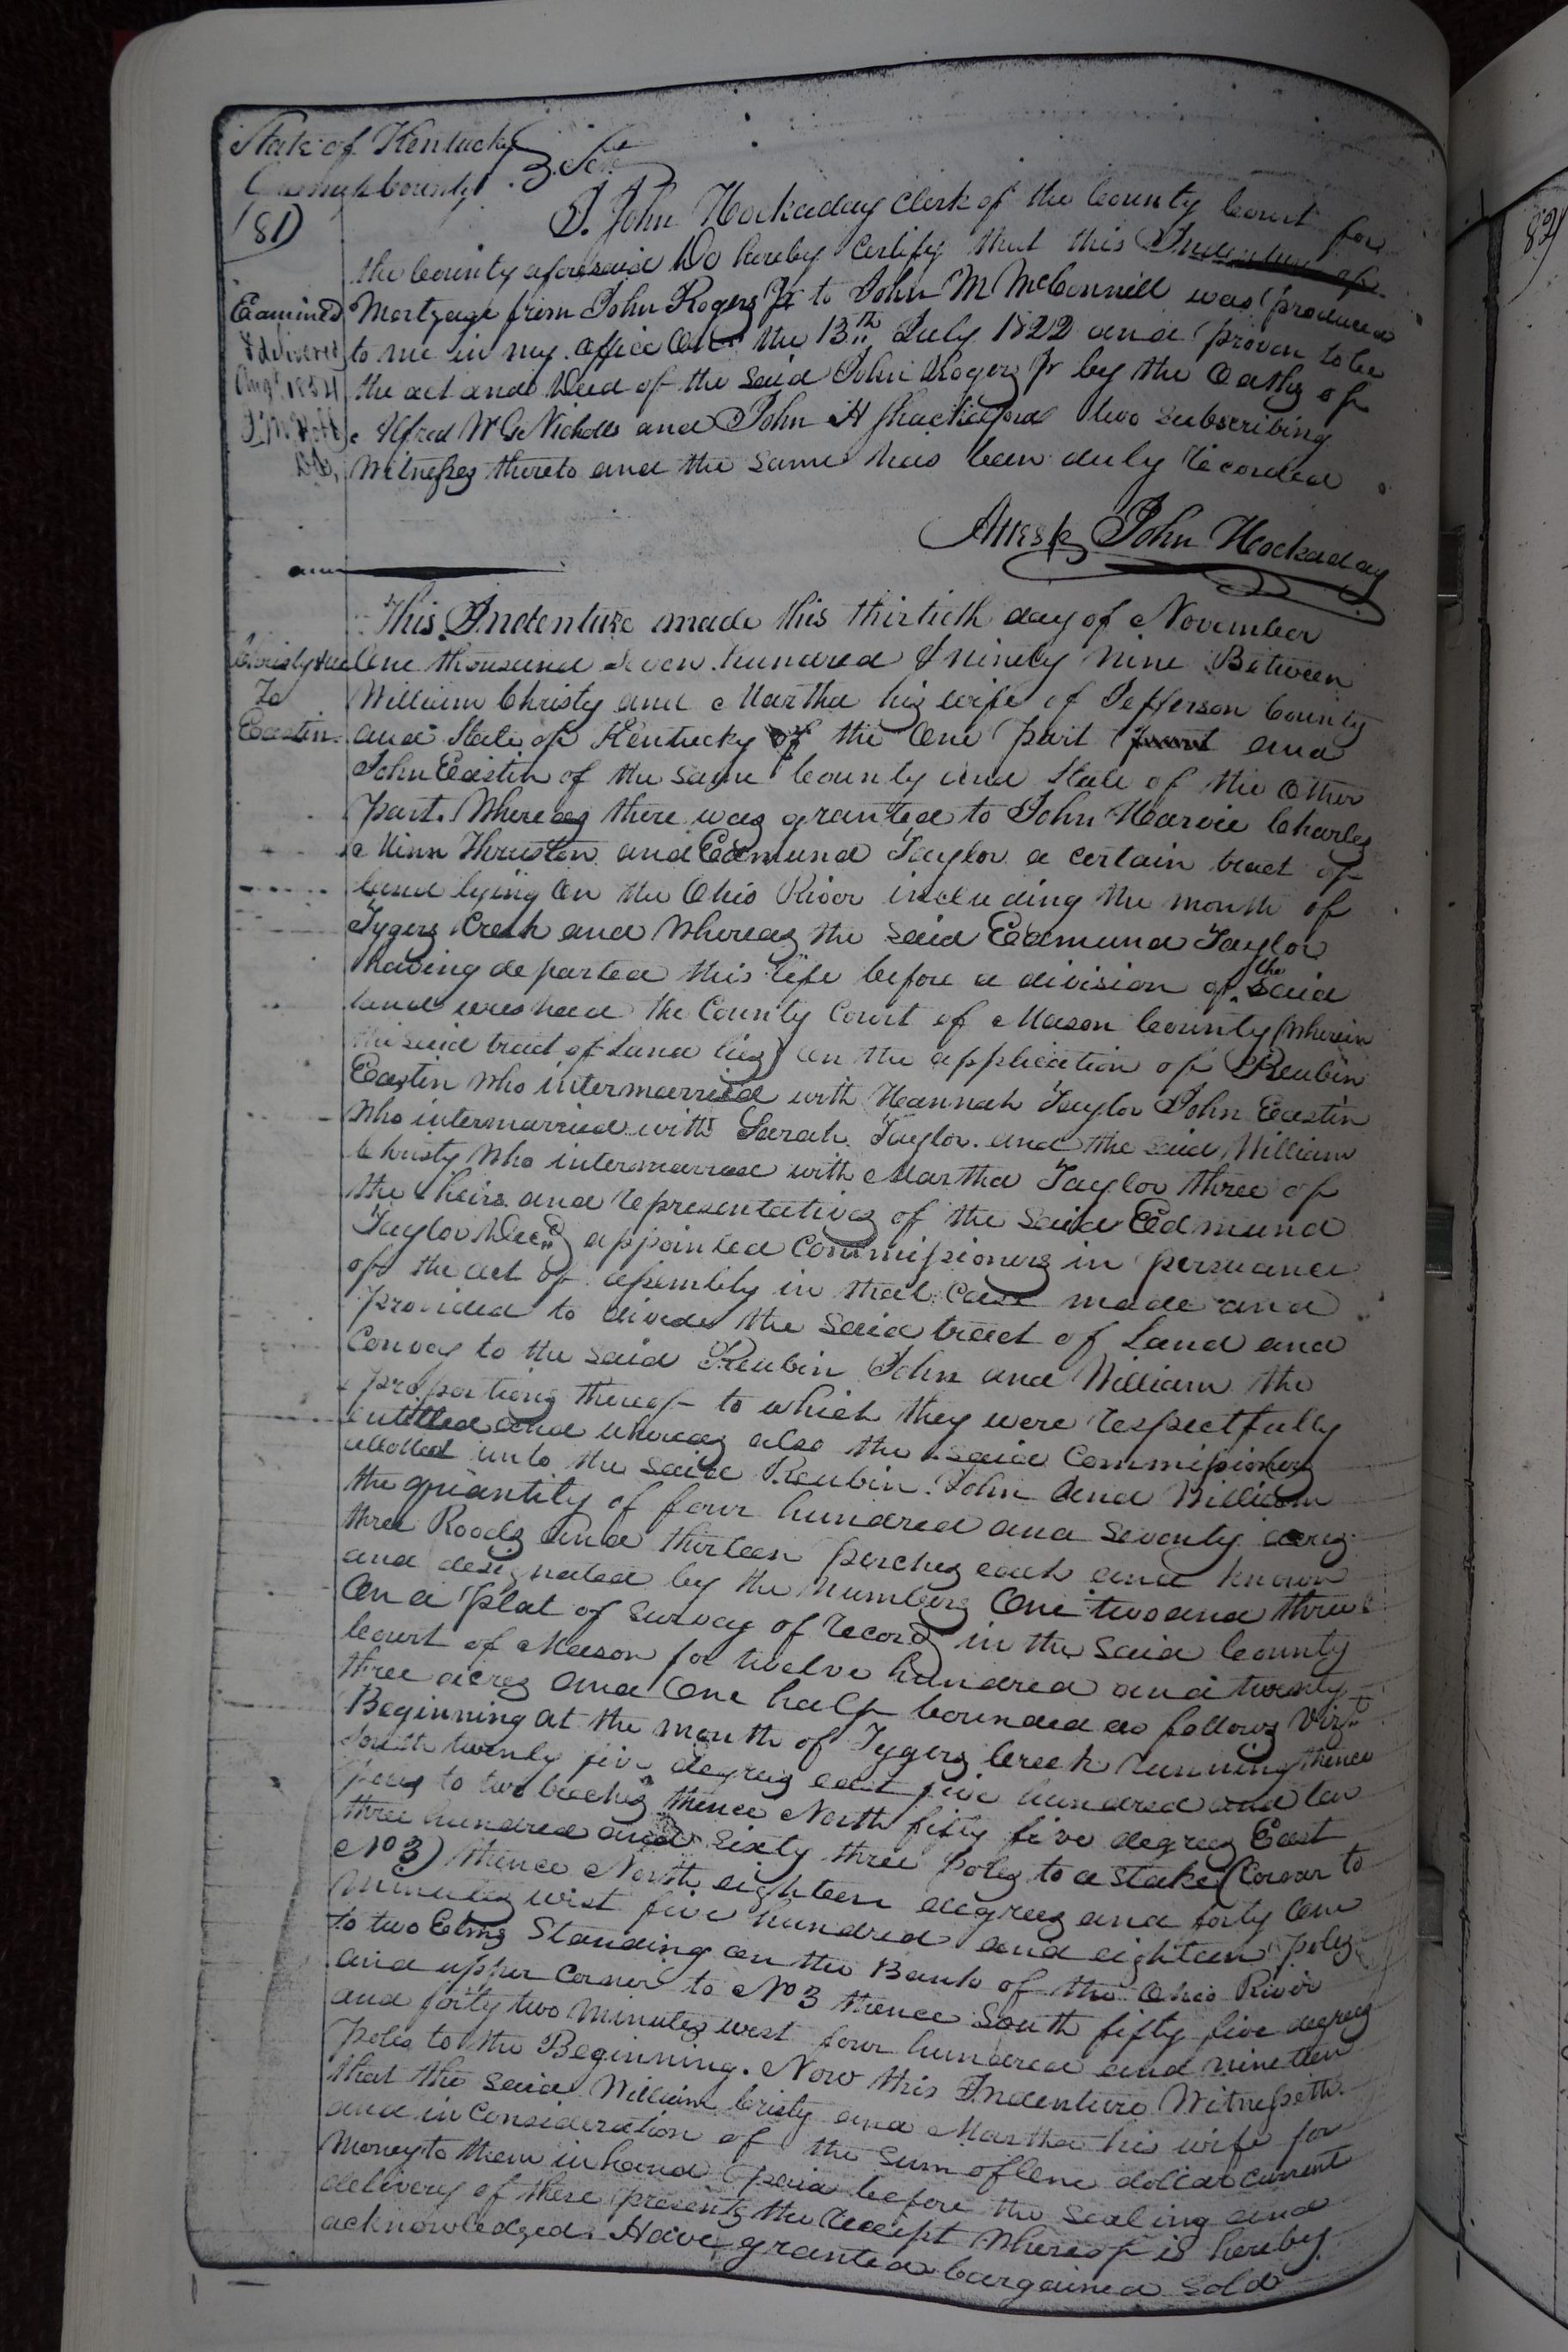 State of Kentucky
Greenup County Sct
(81)
I, John Hockaday Clerk of the County Court for
the County aforesaid Do hereby Certify that this Indenture of
Examined
& delivered
Augt 1854
Mortgage from John Rogers Jr to John M McConnell was produced
to me in my office On the 13th July 1822 and proven to be
the act and Deed of the said John Rogers Jr by the Oaths of
Alfred W G Nicholls and John H Shackleford two subscribing
Witnesses thereto and the same has been duly Recorded
Attest John Hockaday
This Indenture made this thirtieth day of November
Christy &
To
Eastin
One thousand seven hundred & ninety nine Between
William Christy and Martha his wife of Jefferson County
and State of Kentucky of the One part and
John Eastin of the same County and State of the Other
part. Whereas there was granted to John Harvie Charles
Minn Thruston and Edmund Taylor a certain tract of
land lying On the Ohio River including the mouth of
Tygers Creek and Whereas the said Edmund Taylor
having departed this life before a division of the said
land was had the County Court of Mason County (wherein
the said tract of Land lies) on the application of Reubin
Eastin who intermarried with Hannah Taylor John Eastin
who intermarried with Sarah Taylor and the said William
Christy who intermarried with Martha Taylor three of
the heirs and representatives of the said Edmund
Taylor Decd appointed Commissioners in persuance
of the act of assembly in that case made and
provided to divide the said tract of Land and
Convey to the said Reubin John and William the
proportions thereof to which they were respectfully
entitled and whereas also the said Commissioners
allotted unto the said Reubin John and William
the quantity of four hundred and seventy acres
three Roods and thirteen perches each and known
and designated by the Numbers One two and three
On a plat of survey of record in the said County
Court of Mason for twelve hundred and twenty
three acres and One half bounded as follows Vizt
Beginning at the mouth of Tygers Creek running thence
south twenty five degrees east five hundred and ten
poles to two beeches thence North fifty five degrees East
three hundred and sixty three poles to a stake (Cornar to
No 3) thence North eighteen degrees and forty One
minutes west five hundred and eighteen poles
to two Elms Standing on the Bank of the Ohio River
and upper Corner to No 3 thence South fifty five degrees
and forty two minutes west four hundred and nineteen
Poles to the Beginning. Now this Indenture Witnesseth
that the said William Cristy and Martha his wife for
and in Consideration of the sum of One dollar current
Money to them in hand paid before the sealing and
delivery of these presents the Receipt Whereof is hereby
acknowledged Have granted bargained Sold